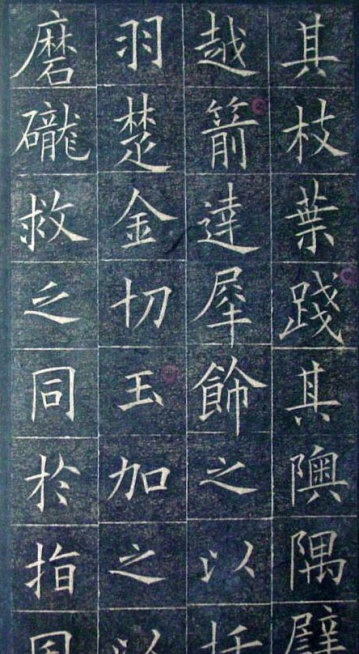 其枝葉踐其隩隅
越箭達犀飾之以
羽楚金切玉加之以
磨礲救之同於指